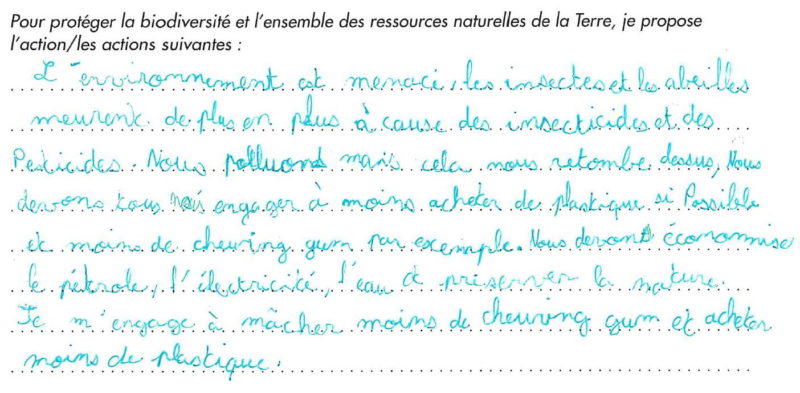 Pour protéger la biodiversité et l'ensemble des ressources naturelles de la Terre, je propose
l'action/les actions suivantes :
L'environnement est menacé, les insectes et les abeilles
meurent de plus en plus à cause des insecticides et des
Pesticides. Nous polluons mais cela nous retombe dessus, Nous
devons tous nous engager à moins acheter de plastique si Possible
et moins de chewing gum par exemple. Nous devont économise
le pétrole, l'électricité, l'eau et préserver la nature.
Je m'engage à mâcher moins de chewing gum et acheter
moins de plastique.